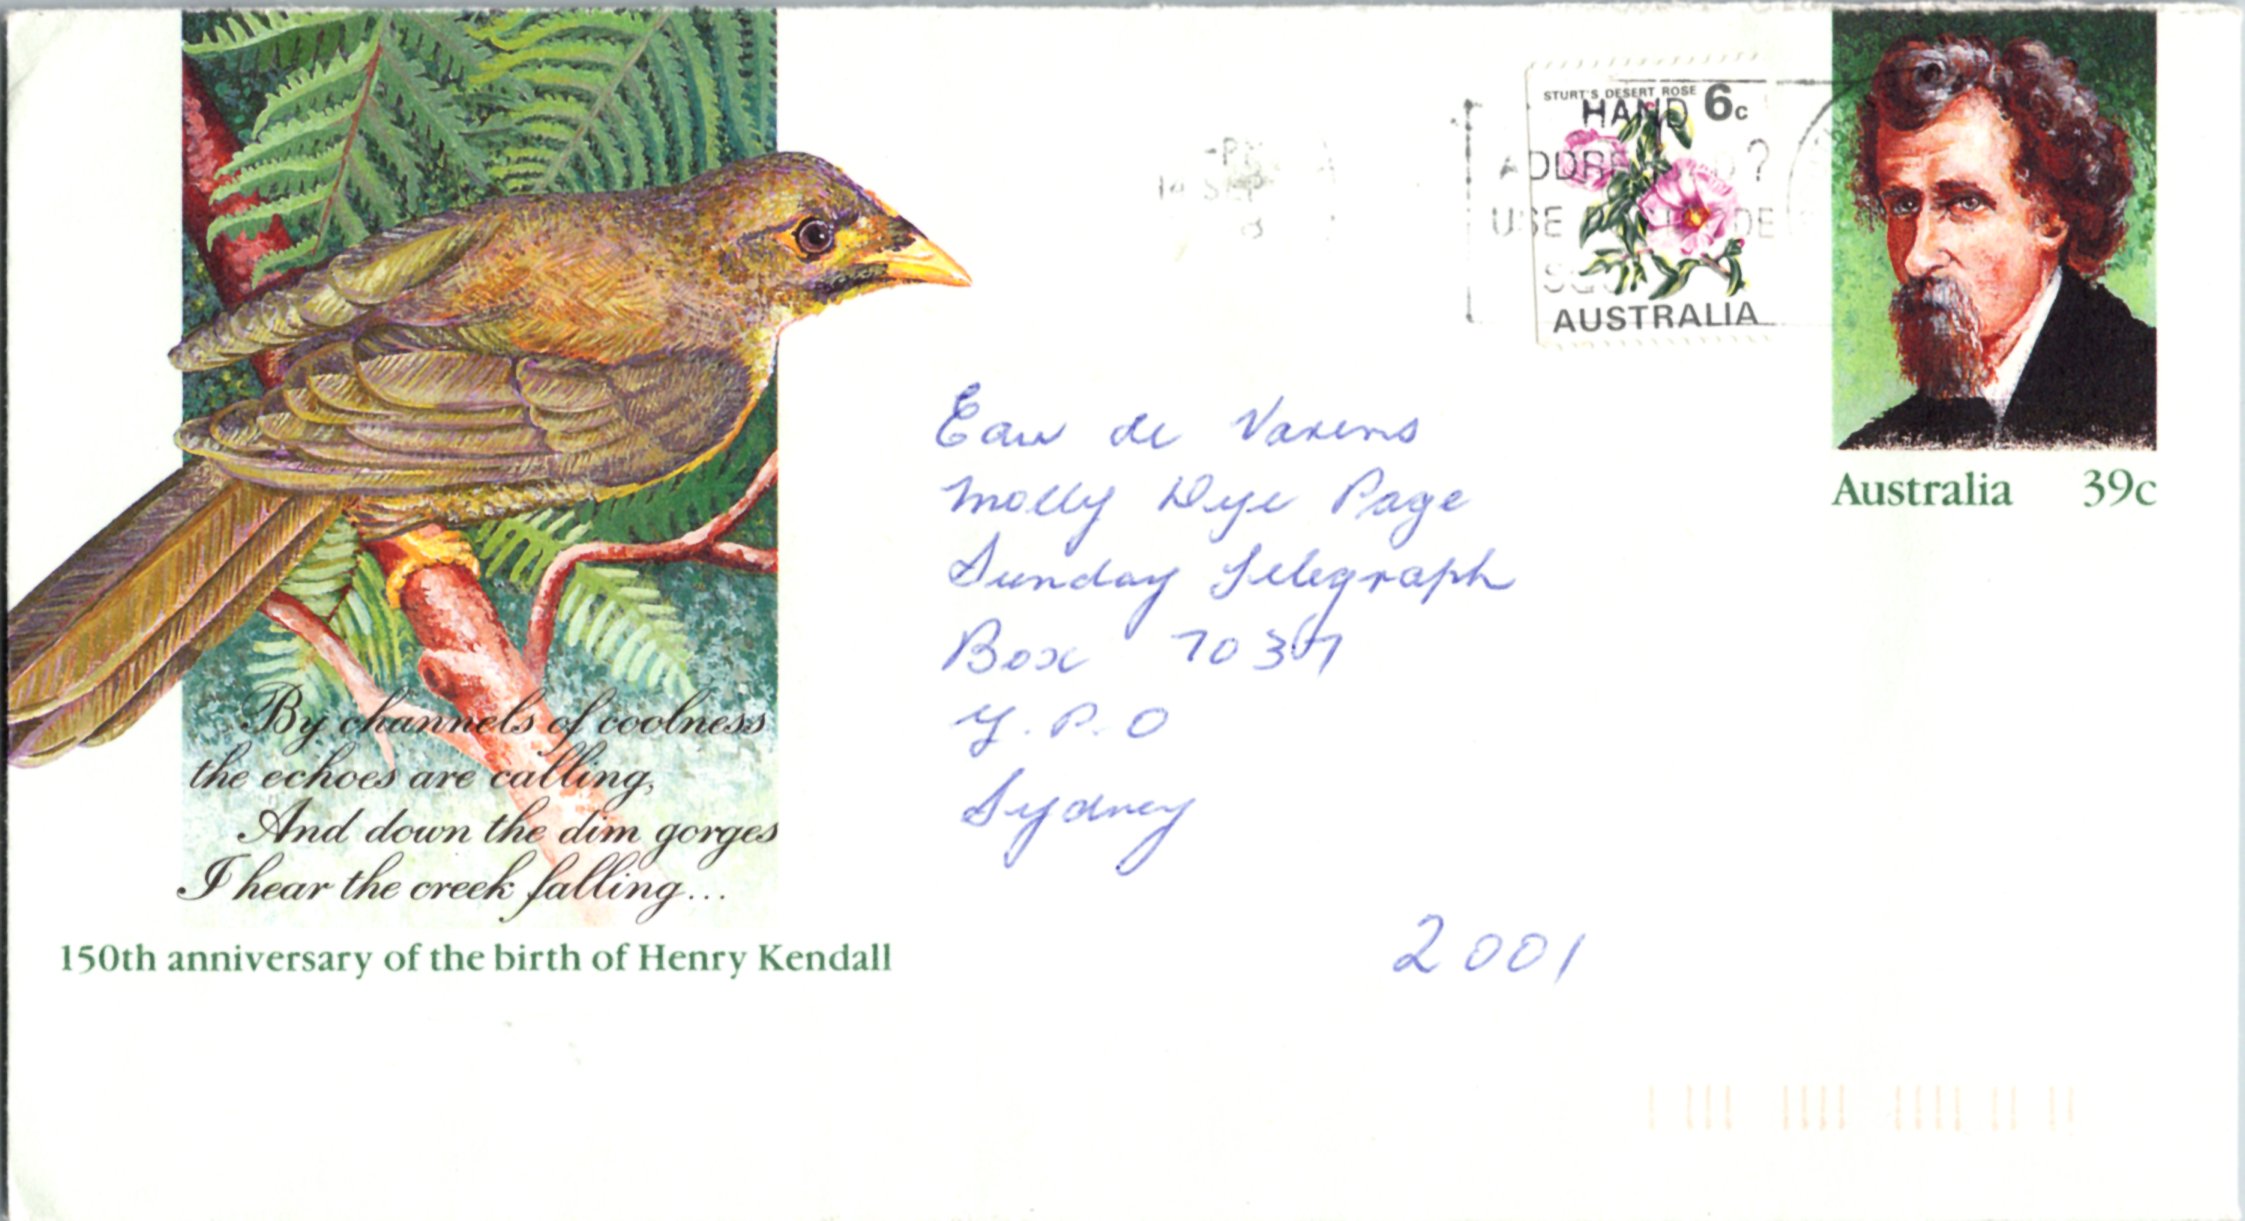 STURT'S DESERT ROSE 6c
HAND
ADDRE ?
USE DE
AUSTRALIA
14 SEP
Australia 39c
Eau de Varens
Molly Dye Page
Sunday Telegraph
Box 7037
G.P.O
Sydney
2001
By channels of coolness
the echoes are calling,
And down the dim gorges
I hear the creek falling...
150th anniversary of the birth of Henry Kendall